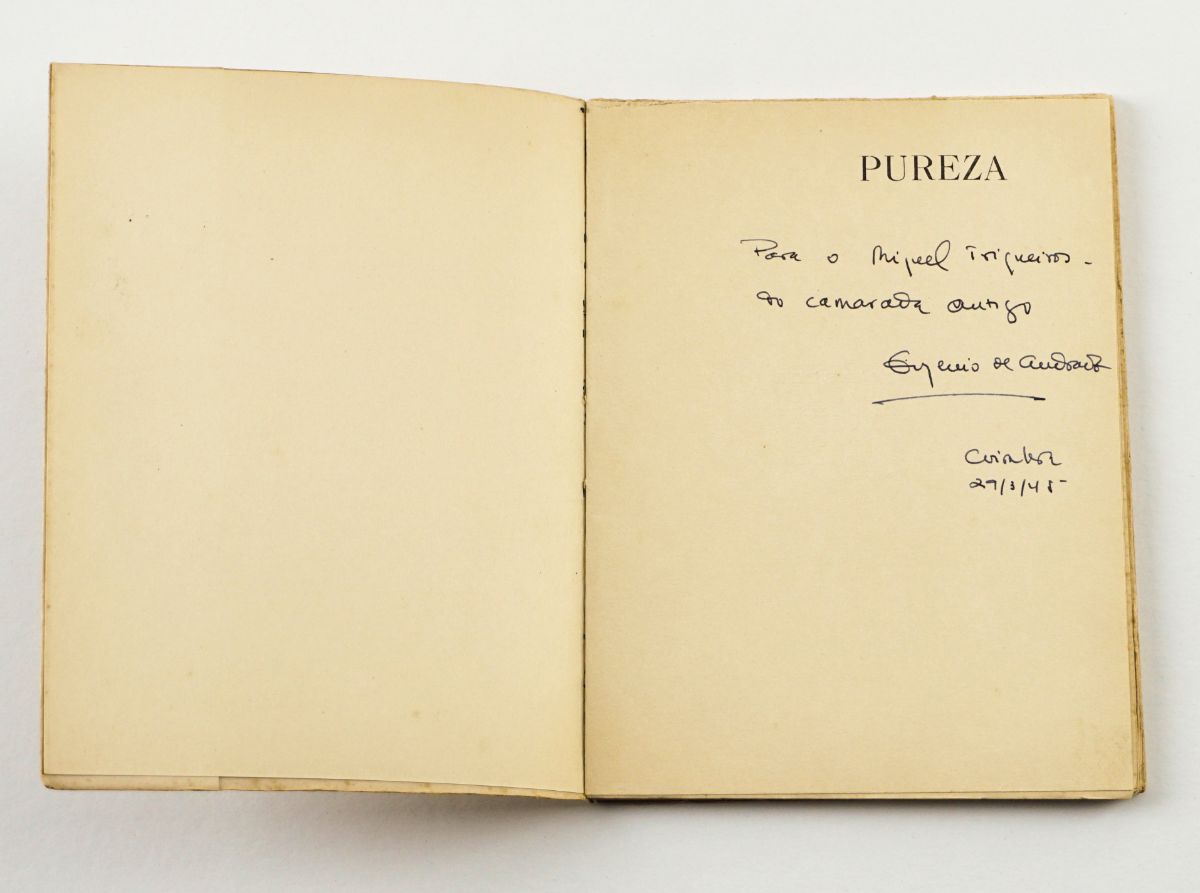 PUREZA
Para o Miguel Trigueiros -
do camarada antigo
Eugenio de Andrade
Coimbra
29/3/45